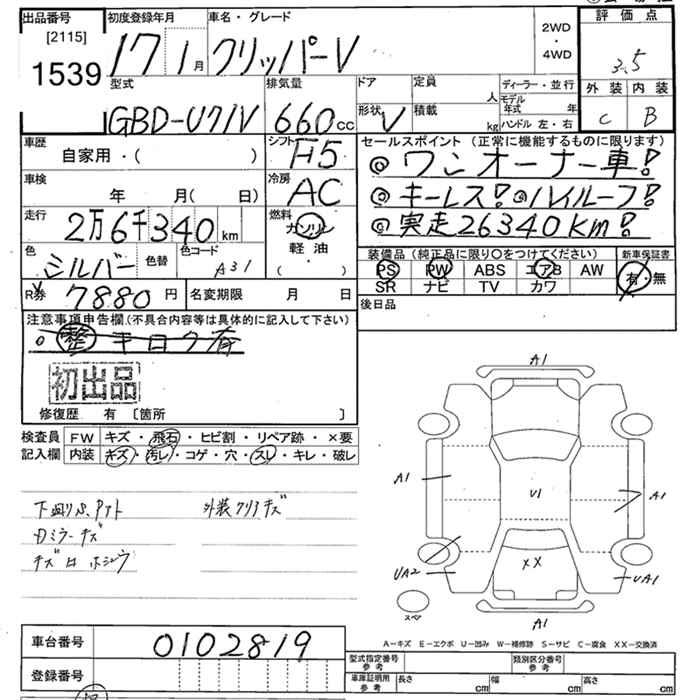 出品番号 初度登録年月 車名・グレード 2WD・4WD 評価点
[2115]
1539 17 1月 クリッパーV 3.5
型式 排気量 ドア 定員 人 ディーラー・並行 外装 内装
GBD-U71V 660cc 形状 V 積載 kg モデル年式 年 ハンドル 左・右 C B
車歴 自家用・( ) シフト F5 セールスポイント (正常に機能するものに限ります)
◎ワンオーナー車!
車検 年 月(日) 冷房 AC ◎キーレス!◎ハイルーフ!
走行 2万6千340km 燃料 ガソリン 軽油 ・( ) ◎実走26340Km!
色 シルバー 色替 色コード A31 装備品 (純正品に限り○をつけてください) 新車保証書
PS PW ABS エアB AW 有・無
SR ナビ TV カワ
R券 7880円 名変期限 月 日 後日品
注意事項申告欄(不具合内容等は具体的に記入して下さい)
整 キロク有
初出品
修復歴 有 〔箇所 〕
検査員 FW キズ・飛石・ヒビ割・リペア跡・×要
記入欄 内装 キズ・汚レ・コゲ・穴・スレ・キレ・破レ
外装クリアキズ
Dミラーキズ
A1
A1 U1 A1
XX
UA2 UA1
スペア A1
A-キズ E-エクボ U-凹み W-補修跡 S-サビ C-腐食 XX-交換済
車台番号 0102819
型式指定番号 参考 類別区分番号 参考
登録番号 車庫証明用 参考 長さ cm 幅 cm 高さ cm